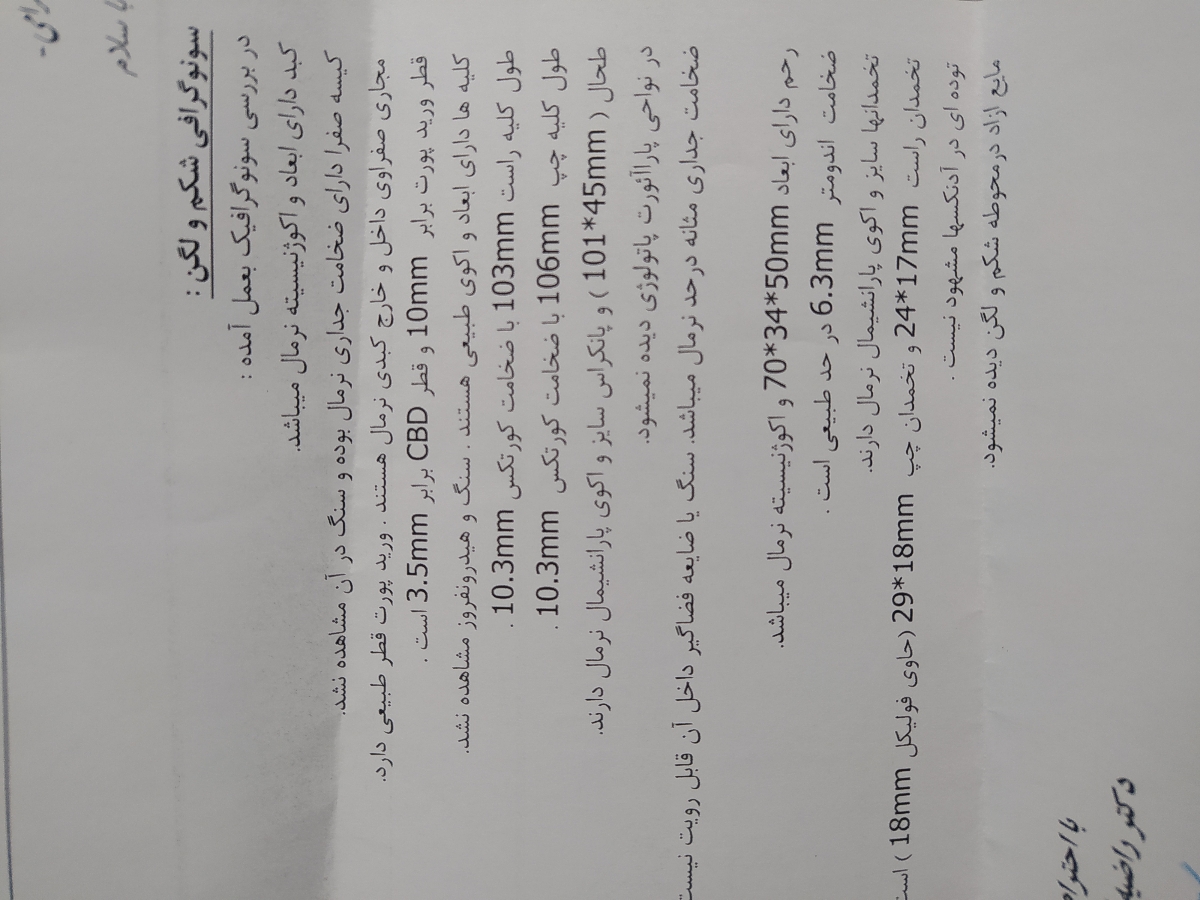 با سلام
سونوگرافی شکم و لگن :
در بررسی سونوگرافیک بعمل آمده :
کبد دارای ابعاد و اکوژنیسیته نرمال میباشد.
کیسه صفرا دارای ضخامت جداری نرمال بوده و سنگ در آن مشاهده نشد.
مجاری صفراوی داخل و خارج کبدی نرمال هستند . ورید پورت قطر طبیعی دارد.
قطر ورید پورت برابر 10mm و قطر CBD برابر 3.5mm است .
کلیه ها دارای ابعاد و اکوی طبیعی هستند . سنگ و هیدرونفروز مشاهده نشد.
طول کلیه راست 103mm با ضخامت کورتکس 10.3mm .
طول کلیه چپ 106mm با ضخامت کورتکس 10.3mm .
طحال ( 101*45mm ) و پانکراس سایز و اکوی پارانشیمال نرمال دارند.
در نواحی پاراآئورت پاتولوژی دیده نمیشود.
ضخامت جداری مثانه درحد نرمال میباشد. سنگ یا ضایعه فضاگیر داخل آن قابل رویت نیست
رحم دارای ابعاد 70*34*50mm و اکوژنیسیته نرمال میباشد.
ضخامت اندومتر 6.3mm در حد طبیعی است .
تخمدانها سایز و اکوی پارانشیمال نرمال دارند.
تخمدان راست 24*17mm و تخمدان چپ 29*18mm (حاوی فولیکل 18mm ) است
توده ای در آدنکسها مشهود نیست .
مایع ازاد درمحوطه شکم و لگن دیده نمیشود.
با احترام
دکتر